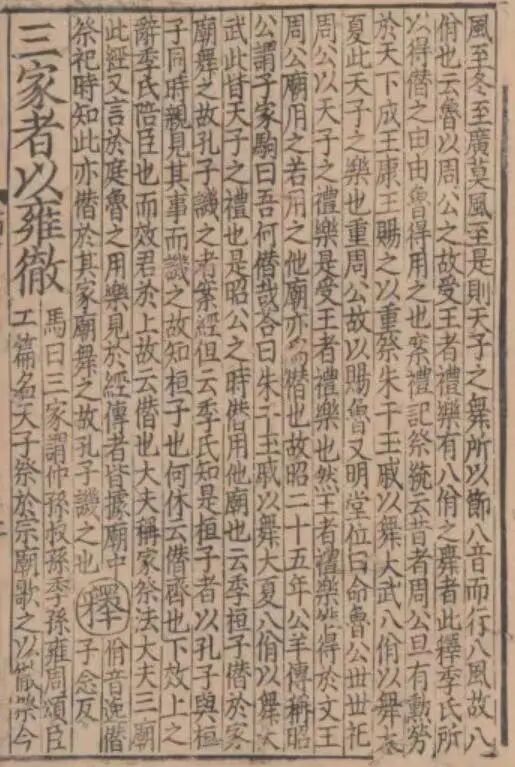 風至冬至廣莫風至是則天子之舞所以節八音而行八風故八
佾也云魯以周公之故受王者禮樂有八佾之舞者此釋季氏所
以得僭之由由魯得用之也案禮記祭統云昔者周公旦有勳勞
於天下成王康王賜之以重祭朱干玉戚以舞大武八佾以舞大
夏此天子之樂也重周公故以賜魯又明堂位曰命魯公世世祀
周公以天子之禮樂是受王者禮樂也然王者禮樂唯得於文王
周公廟用之若用之他廟亦為僭也故昭二十五年公羊傳稱昭
公謂子家駒曰吾何僭哉荅曰朱干玉戚以舞大夏八佾以舞大
武此皆天子之禮也是昭公之時僭用他廟也云季桓子僭於家
廟舞之故孔子譏之者案經但云季氏知是桓子者以孔子與桓
子同時親見其事而譏之故知桓子也何休云僭齊也下效上之
辭季氏陪臣也而效君於上故云僭也大夫稱家祭法大夫三廟
此經又言於庭魯之用樂見於經傳者皆據廟中
祭祀時知此亦僭於其家廟舞之故孔子譏之也
釋
佾音逸僭
子念反
三家者以雍徹
馬曰三家謂仲孫叔孫季孫雍周頌臣
工篇名天子祭於宗廟歌之以徹祭今